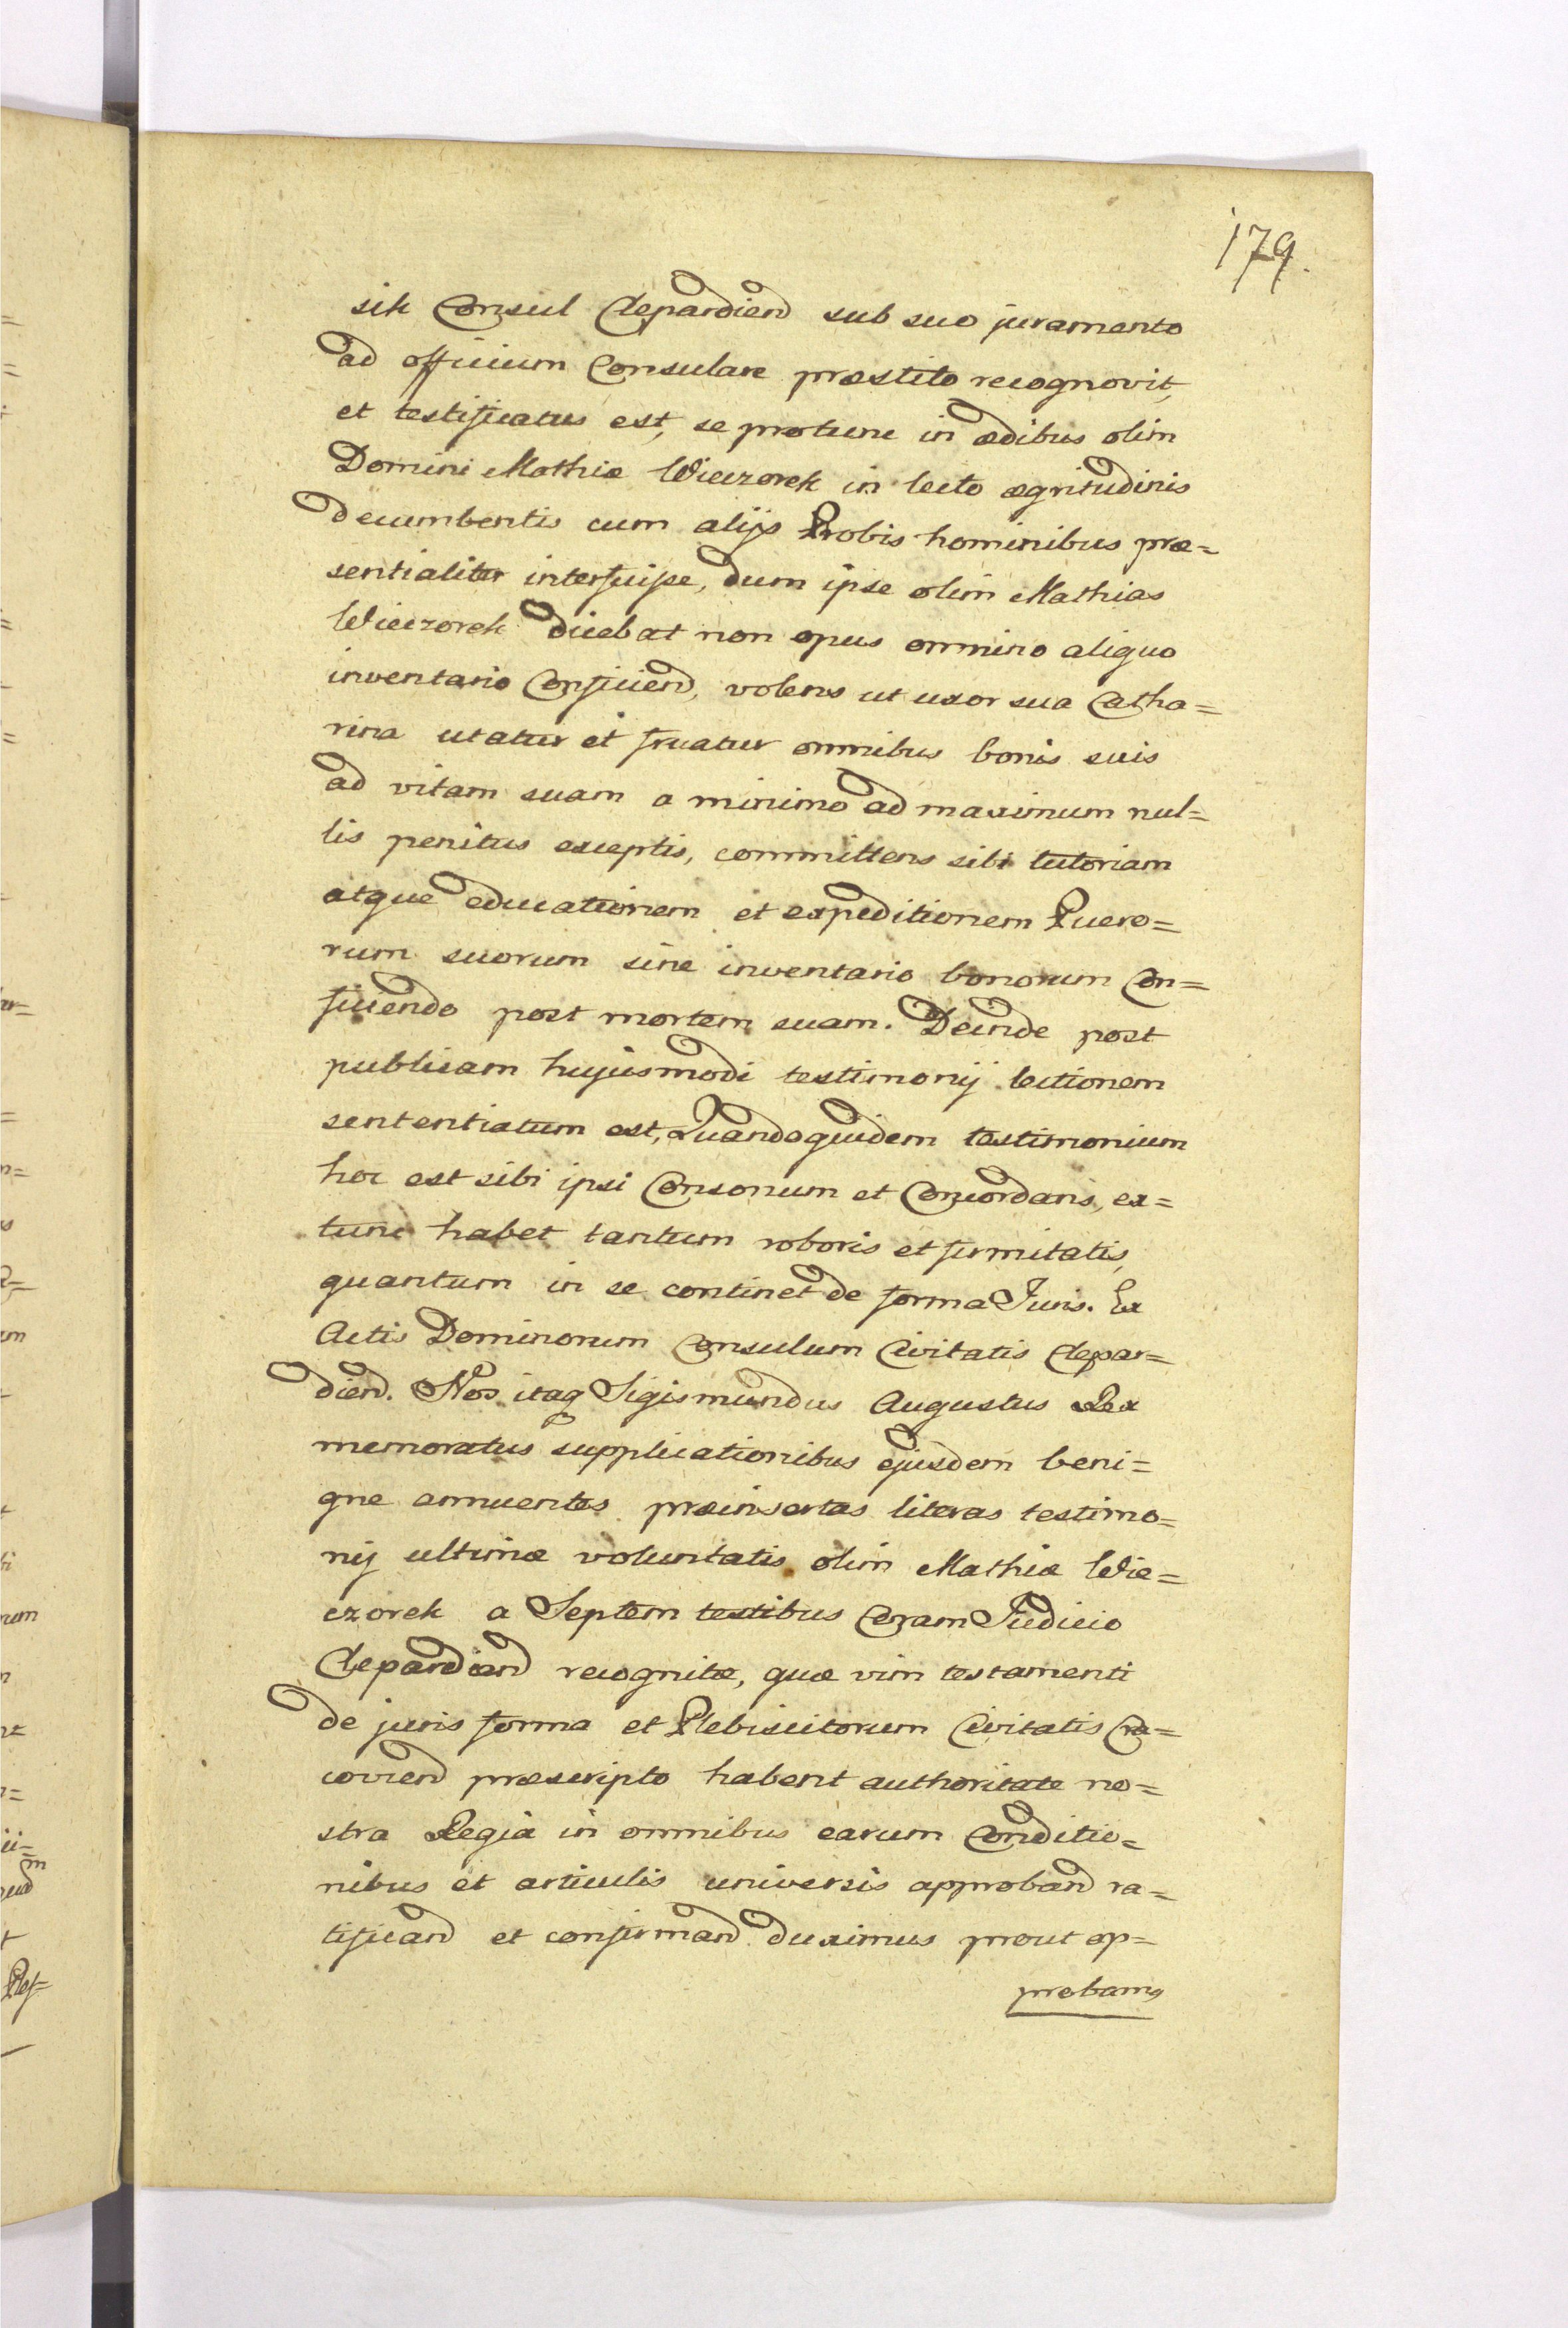 179.
sik Consul Clepardien sub suo juramento
ad officium Consulare præstito recognovit,
et testificatus est, se protunc in ædibus olim
Domini Mathiæ Wieczorek in lecto ægritudinis
decumbentis cum alijs Probis hominibus præ=
sentialiter interfuisse, dum ipse olim Mathias
Wieczorek dicebat non opus omnino aliquo
inventario Conficiend, volens ut uxor sua Catha=
rina utatur et fruatur omnibus bonis suis
ad vitam suam a minimo ad maximum nul=
lis penitus exceptis, committens sibi tutoriam
atque educationem et expeditionem Puero=
rum suorum sine inventario bonorum Con=
ficiendo post mortem suam. Deinde post
publicam hujusmodi testimonij lectionem
sententiatum est, Quandoquidem testimonium
hoc est sibi ipsi Consonum et Concordans, ex=
tunc habet tantum roboris et firmitatis,
quantum in se continet de forma Juris. Ex
Actis Dominorum Consulum Civitatis Clepar=
dien. Nos itaq Sigismundus Augustus Rex
memoratus supplicationibus ejusdem beni=
gne annuentes præinsertas literas testimo=
nij ultimæ voluntatis olim Mathiæ Wie=
czorek a Septem testibus Coram Judicio
Clepardien recognitæ, quæ vim testamenti
de juris forma et Plebiscitorum Civitatis Cra=
covien præscripto habent authoritate no=
stra Regia in omnibus earum Conditio=
nibus et articulis universis approband ra=
tificand et confirmand duximus prout ap=
probamus